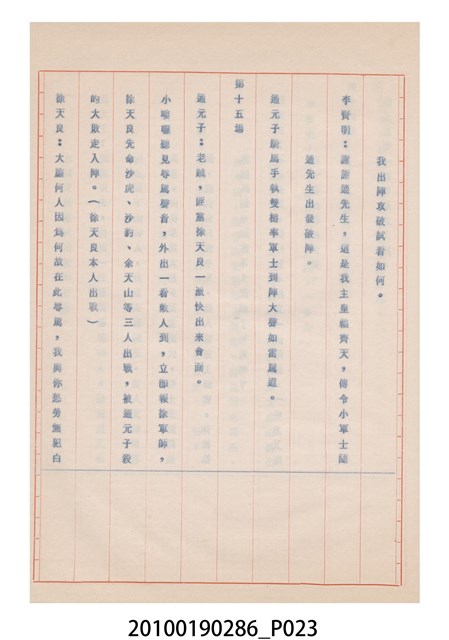 我出陣攻破試看如何。
李賢明：謝謝通先生，這是我主皇福齊天，傳令小軍士隨
通先生出發破陣。
通元子騎馬手執雙棍率軍士到陣大聲如雷罵道。
第十五場
通元子：老賊，匪黨徐天良一派快出來會面。
小嘍囉聽見辱罵聲音，外出一看敵人到，立即報徐軍師，
徐天良先命沙虎、沙豹、余天山等三人出戰，被通元子殺
的大敗走入陣。（徐天良本人出戰）
徐天良：大膽何人因為何故在此辱罵，我與你恩勞無記白
20100190286_P023